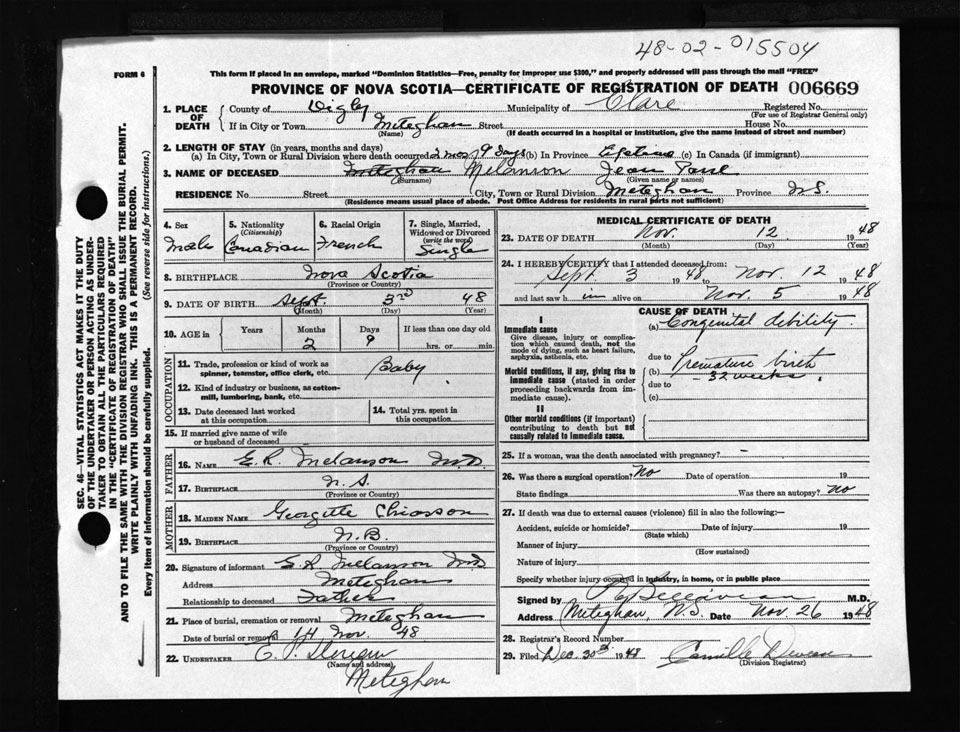 48-02-015504
FORM 6
This form if placed in an envelope, marked "Dominion Statistics—Free, penalty for improper use $300," and properly addressed will pass through the mail "FREE"
PROVINCE OF NOVA SCOTIA—CERTIFICATE OF REGISTRATION OF DEATH 006669
1. PLACE OF DEATH
County of Digby Municipality of Clare Registered No.
(For use of Registrar General only)
If in City or Town Meteghan Street House No.
(Name) (If death occurred in a hospital or institution, give the name instead of street and number)
2. LENGTH OF STAY (in years, months and days)
(a) In City, Town or Rural Division where death occurred 2 mos 9 days (b) In Province Lifetime (c) In Canada (if immigrant)
3. NAME OF DECEASED Meteghan Melanson Jean Paul
(Surname) (Given name or names)
RESIDENCE No. Street City, Town or Rural Division Meteghan Province N.S.
(Residence means usual place of abode. Post Office Address for residents in rural parts not sufficient)
4. Sex
Male
5. Nationality
(Citizenship)
Canadian
6. Racial Origin
French
7. Single, Married, Widowed or Divorced
(write the word)
Single
8. BIRTHPLACE Nova Scotia
(Province or Country)
9. DATE OF BIRTH Sept. 3rd 48
(Month) (Day) (Year)
10. AGE in Years Months Days If less than one day old
2 9 hrs. or min.
OCCUPATION
11. Trade, profession or kind of work as spinner, teamster, office clerk, etc. Baby
12. Kind of industry or business, as cotton-mill, lumbering, bank, etc.
13. Date deceased last worked at this occupation
14. Total yrs. spent in this occupation
15. If married give name of wife or husband of deceased
FATHER
16. NAME E. R. Melanson M.D.
17. BIRTHPLACE N. S.
(Province or Country)
MOTHER
18. MAIDEN NAME Georgette Chiasson
19. BIRTHPLACE N. B.
(Province or Country)
20. Signature of informant E. R. Melanson MD
Address Meteghan
Relationship to deceased Father
21. Place of burial, cremation or removal Meteghan
Date of burial or removal 14 Nov. 48
22. UNDERTAKER
(Name and address)
Meteghan
MEDICAL CERTIFICATE OF DEATH
23. DATE OF DEATH Nov. 12 1948
(Month) (Day) (Year)
24. I HEREBY CERTIFY that I attended deceased from:
Sept. 3 1948 to Nov. 12 1948
and last saw him alive on Nov. 5 1948
CAUSE OF DEATH
I
Immediate cause
Give disease, injury or complication which caused death, not the mode of dying, such as heart failure, asphyxia, asthenia, etc.
(a) Congenital debility.
due to
Morbid conditions, if any, giving rise to immediate cause (stated in order proceeding backwards from immediate cause).
(b) Premature birth
- 32 weeks.
due to
(c)
II
Other morbid conditions (if important) contributing to death but not causally related to immediate cause.
25. If a woman, was the death associated with pregnancy? -
26. Was there a surgical operation? No Date of operation 19
State findings Was there an autopsy? no
27. If death was due to external causes (violence) fill in also the following:—
Accident, suicide or homicide? Date of injury 19
(State which)
Manner of injury
(How sustained)
Nature of injury
Specify whether injury occurred in industry, in home, or in public place
Signed by M.D.
Address Meteghan, N.S. Date Nov. 26 1948
28. Registrar's Record Number
29. Filed Dec. 30th 1948 Camille
(Division Registrar)
SEC. 46—VITAL STATISTICS ACT MAKES IT THE DUTY
OF THE UNDERTAKER OR PERSON ACTING AS UNDER-
TAKER TO OBTAIN ALL THE PARTICULARS REQUIRED
IN THE "CERTIFICATE OF REGISTRATION OF DEATH"
AND TO FILE THE SAME WITH THE DIVISION REGISTRAR WHO SHALL ISSUE THE BURIAL PERMIT.
WRITE PLAINLY WITH UNFADING INK. THIS IS A PERMANENT RECORD.
Every item of information should be carefully supplied. (See reverse side for instructions.)